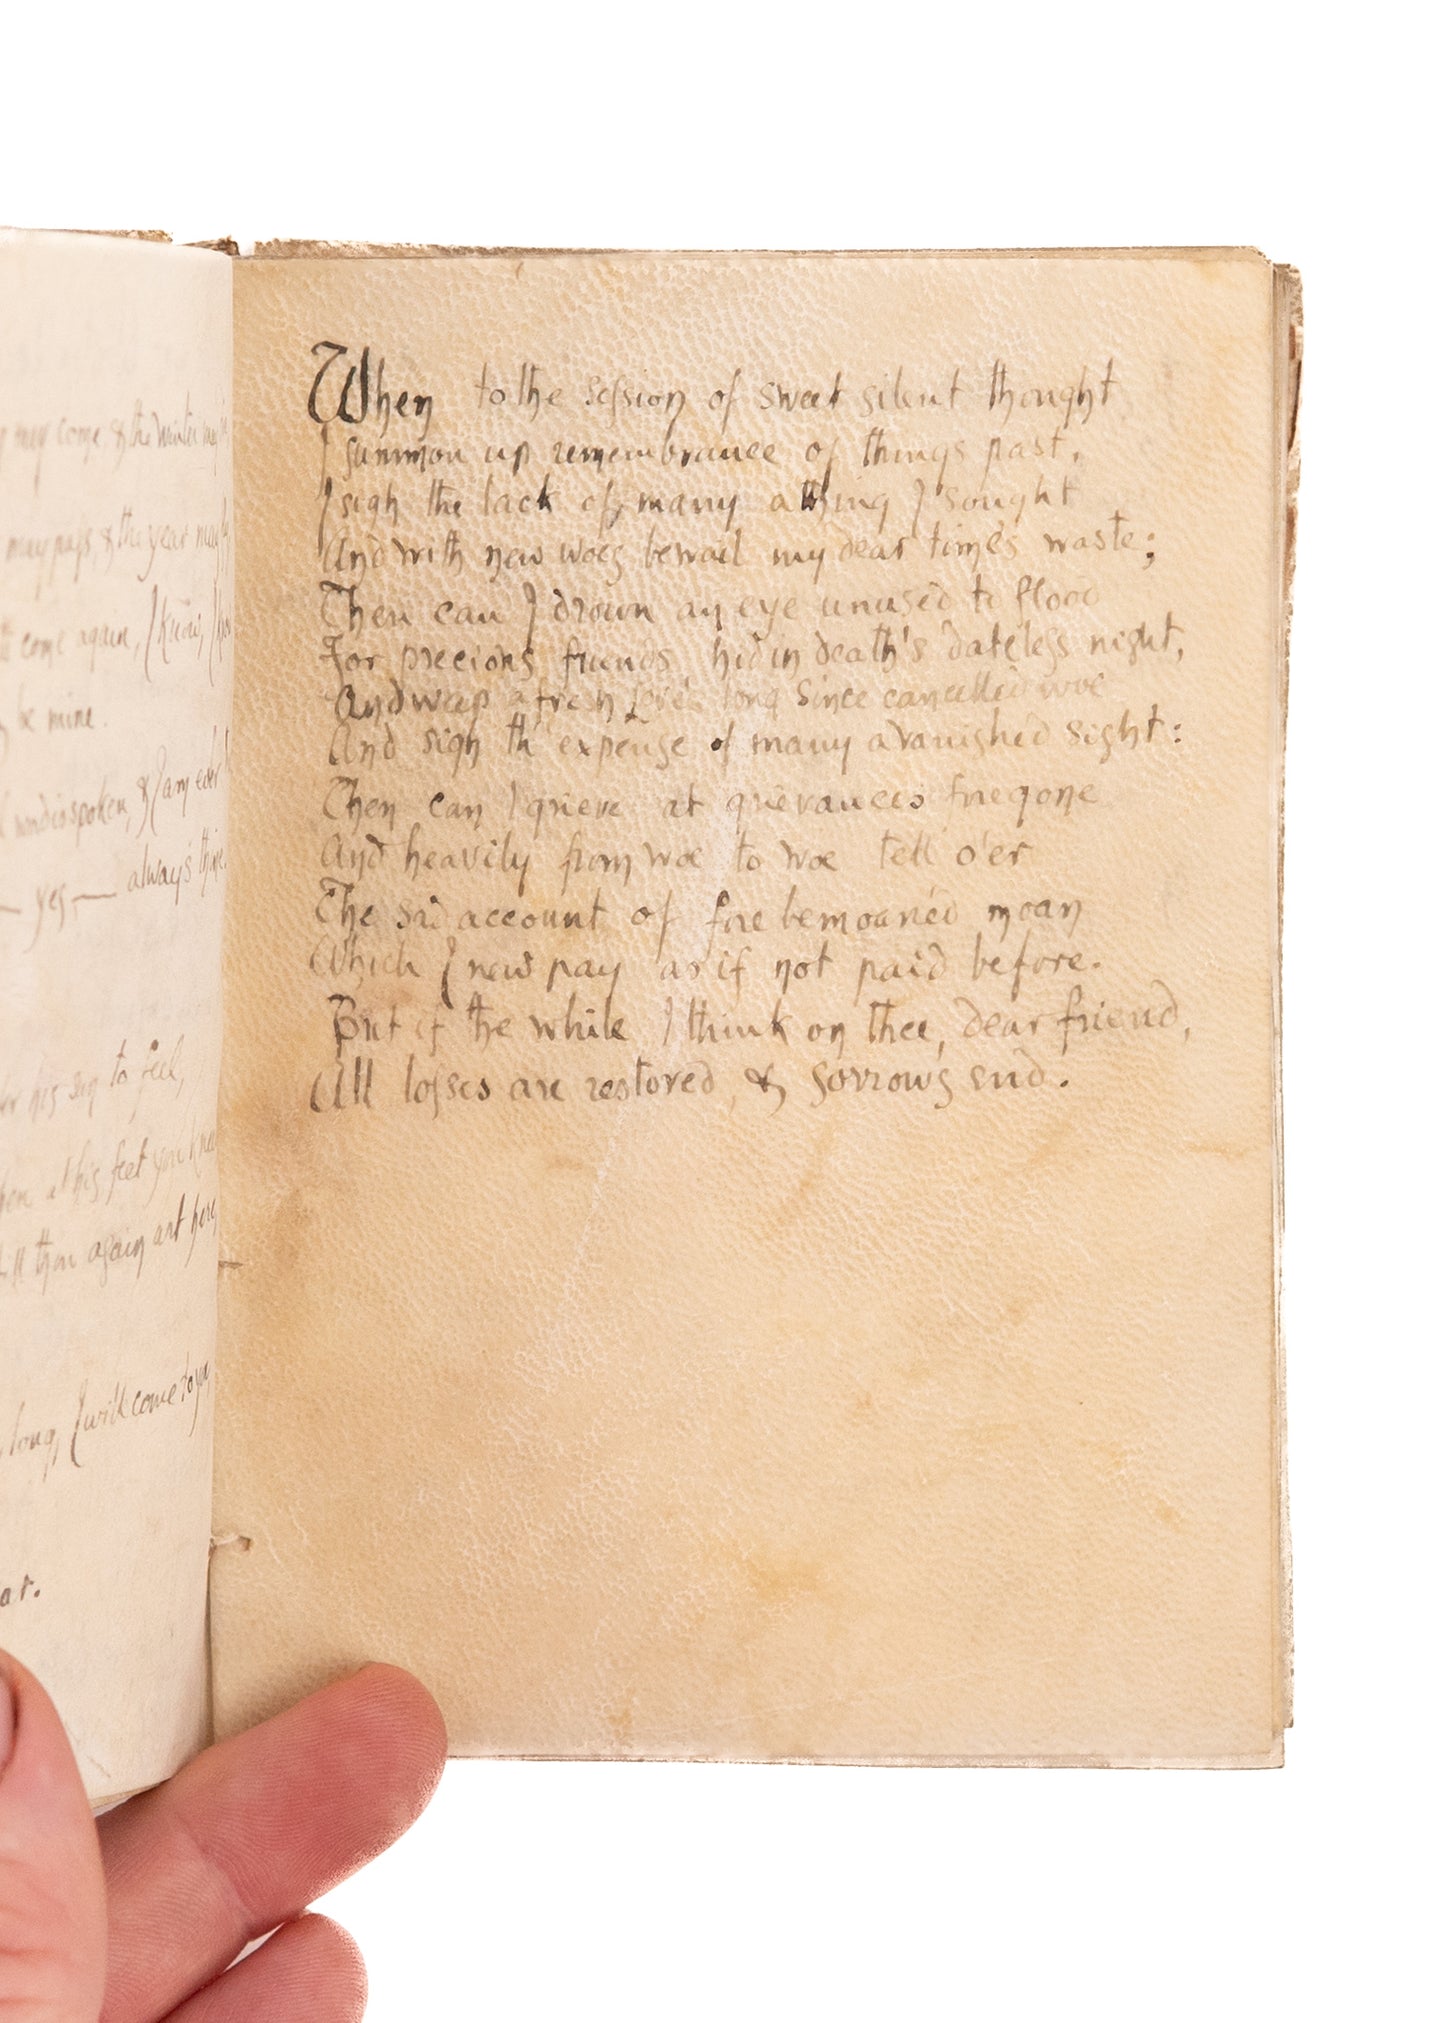 my come, & the winter may
may pass, & the year may
come again, I know, I know
be mine.
word is spoken, & I am ever
— yes, — always thine.
his son to feel,
at his feet you kneel
till thou again art here,
long, I will come to you
at.
When to the session of sweet silent thought
I summon up remembrance of things past,
I sigh the lack of many a thing I sought
And with new woes bewail my dear time's waste;
Then can I drown an eye unused to flood
For precious friends hid in death's dateless night,
And weep afresh love's long since cancelled woe
And sigh th' expense of many a vanished sight:
Then can I grieve at grievances foregone
And heavily from woe to woe tell o'er
The sad account of fore bemoanéd moan
Which I new pay as if not paid before.
But if the while I think on thee, dear friend,
All losses are restored, & sorrows end.